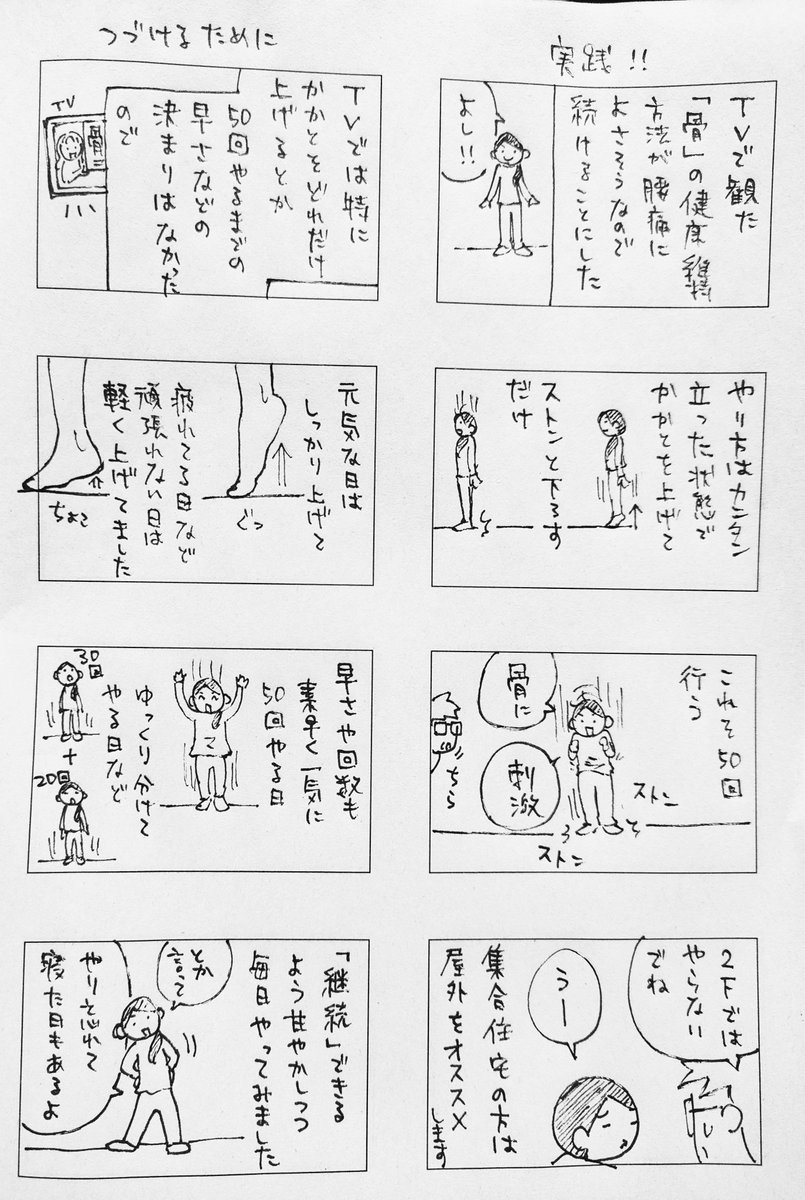 実践!!
TVで観た
「骨」の健康維持
方法が腰痛に
よさそうなので
続けることにした
よし!!
やり方はカンタン
立った状態で
かかとを上げて
ストンと下ろす
だけ
これを50回
行う
骨に
刺激
ちら
ストン
ストン
2Fでは
やらない
でね
うー
集合住宅の方は
屋外をオススメ
します
つづけるために
TVでは特に
かかとをどれだけ
上げるとか
50回やるまでの
早さなどの
決まりはなかった
ので
TV
骨
元気な日は
しっかり上げて
ぐっ
疲れてる日など
頑張れない日は
軽く上げてました
ちょこ
早さや回数も
素早く一気に
50回やる日
ゆっくり分けて
やる日など
30回
+
20回
「継続」できる
よう甘やかしつつ
毎日やってみました
とか
言って
やり忘れて
寝た日もあるよ